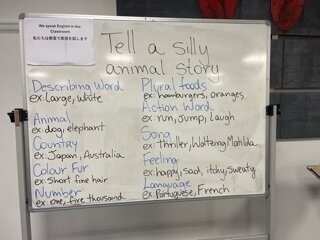 We speak English in the
Classroom
私たちは教室で英語を話します
Tell a silly
animal story
Describing Word
ex: Large, white
Animal
ex: dog, elephant
Country
ex: Japan, Australia
Colour Fur
ex: Short fine hair
Number
ex: one, five thousand
Plural foods
ex: hamburgers, oranges
Action Word
ex: run, Jump, Laugh
Song
ex: Thriller, Waltzing Matilda
Feeling
ex: happy, sad, itchy, sweaty
Language
ex: Portuguese, French